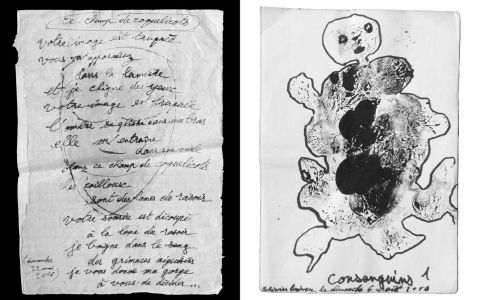 ce champ de coquelicots
votre image est trapuée
vous m'apparaissez
dans la lumière
et je cligne des yeux
votre image est trapuée
l'ombre se glisse dans mes bras
elle m'entraîne
dans son voile
dans ce champ de coquelicots
les cailloux
sont des lames de rasoir
votre sourire est découpé
à la lame du rasoir
je baigne dans le sang
des grimaces aiguisées
je vous donne ma gorge
à vous de décider...
dimanche
22 mai
2010
consanguins 1
le dimanche 6 2010